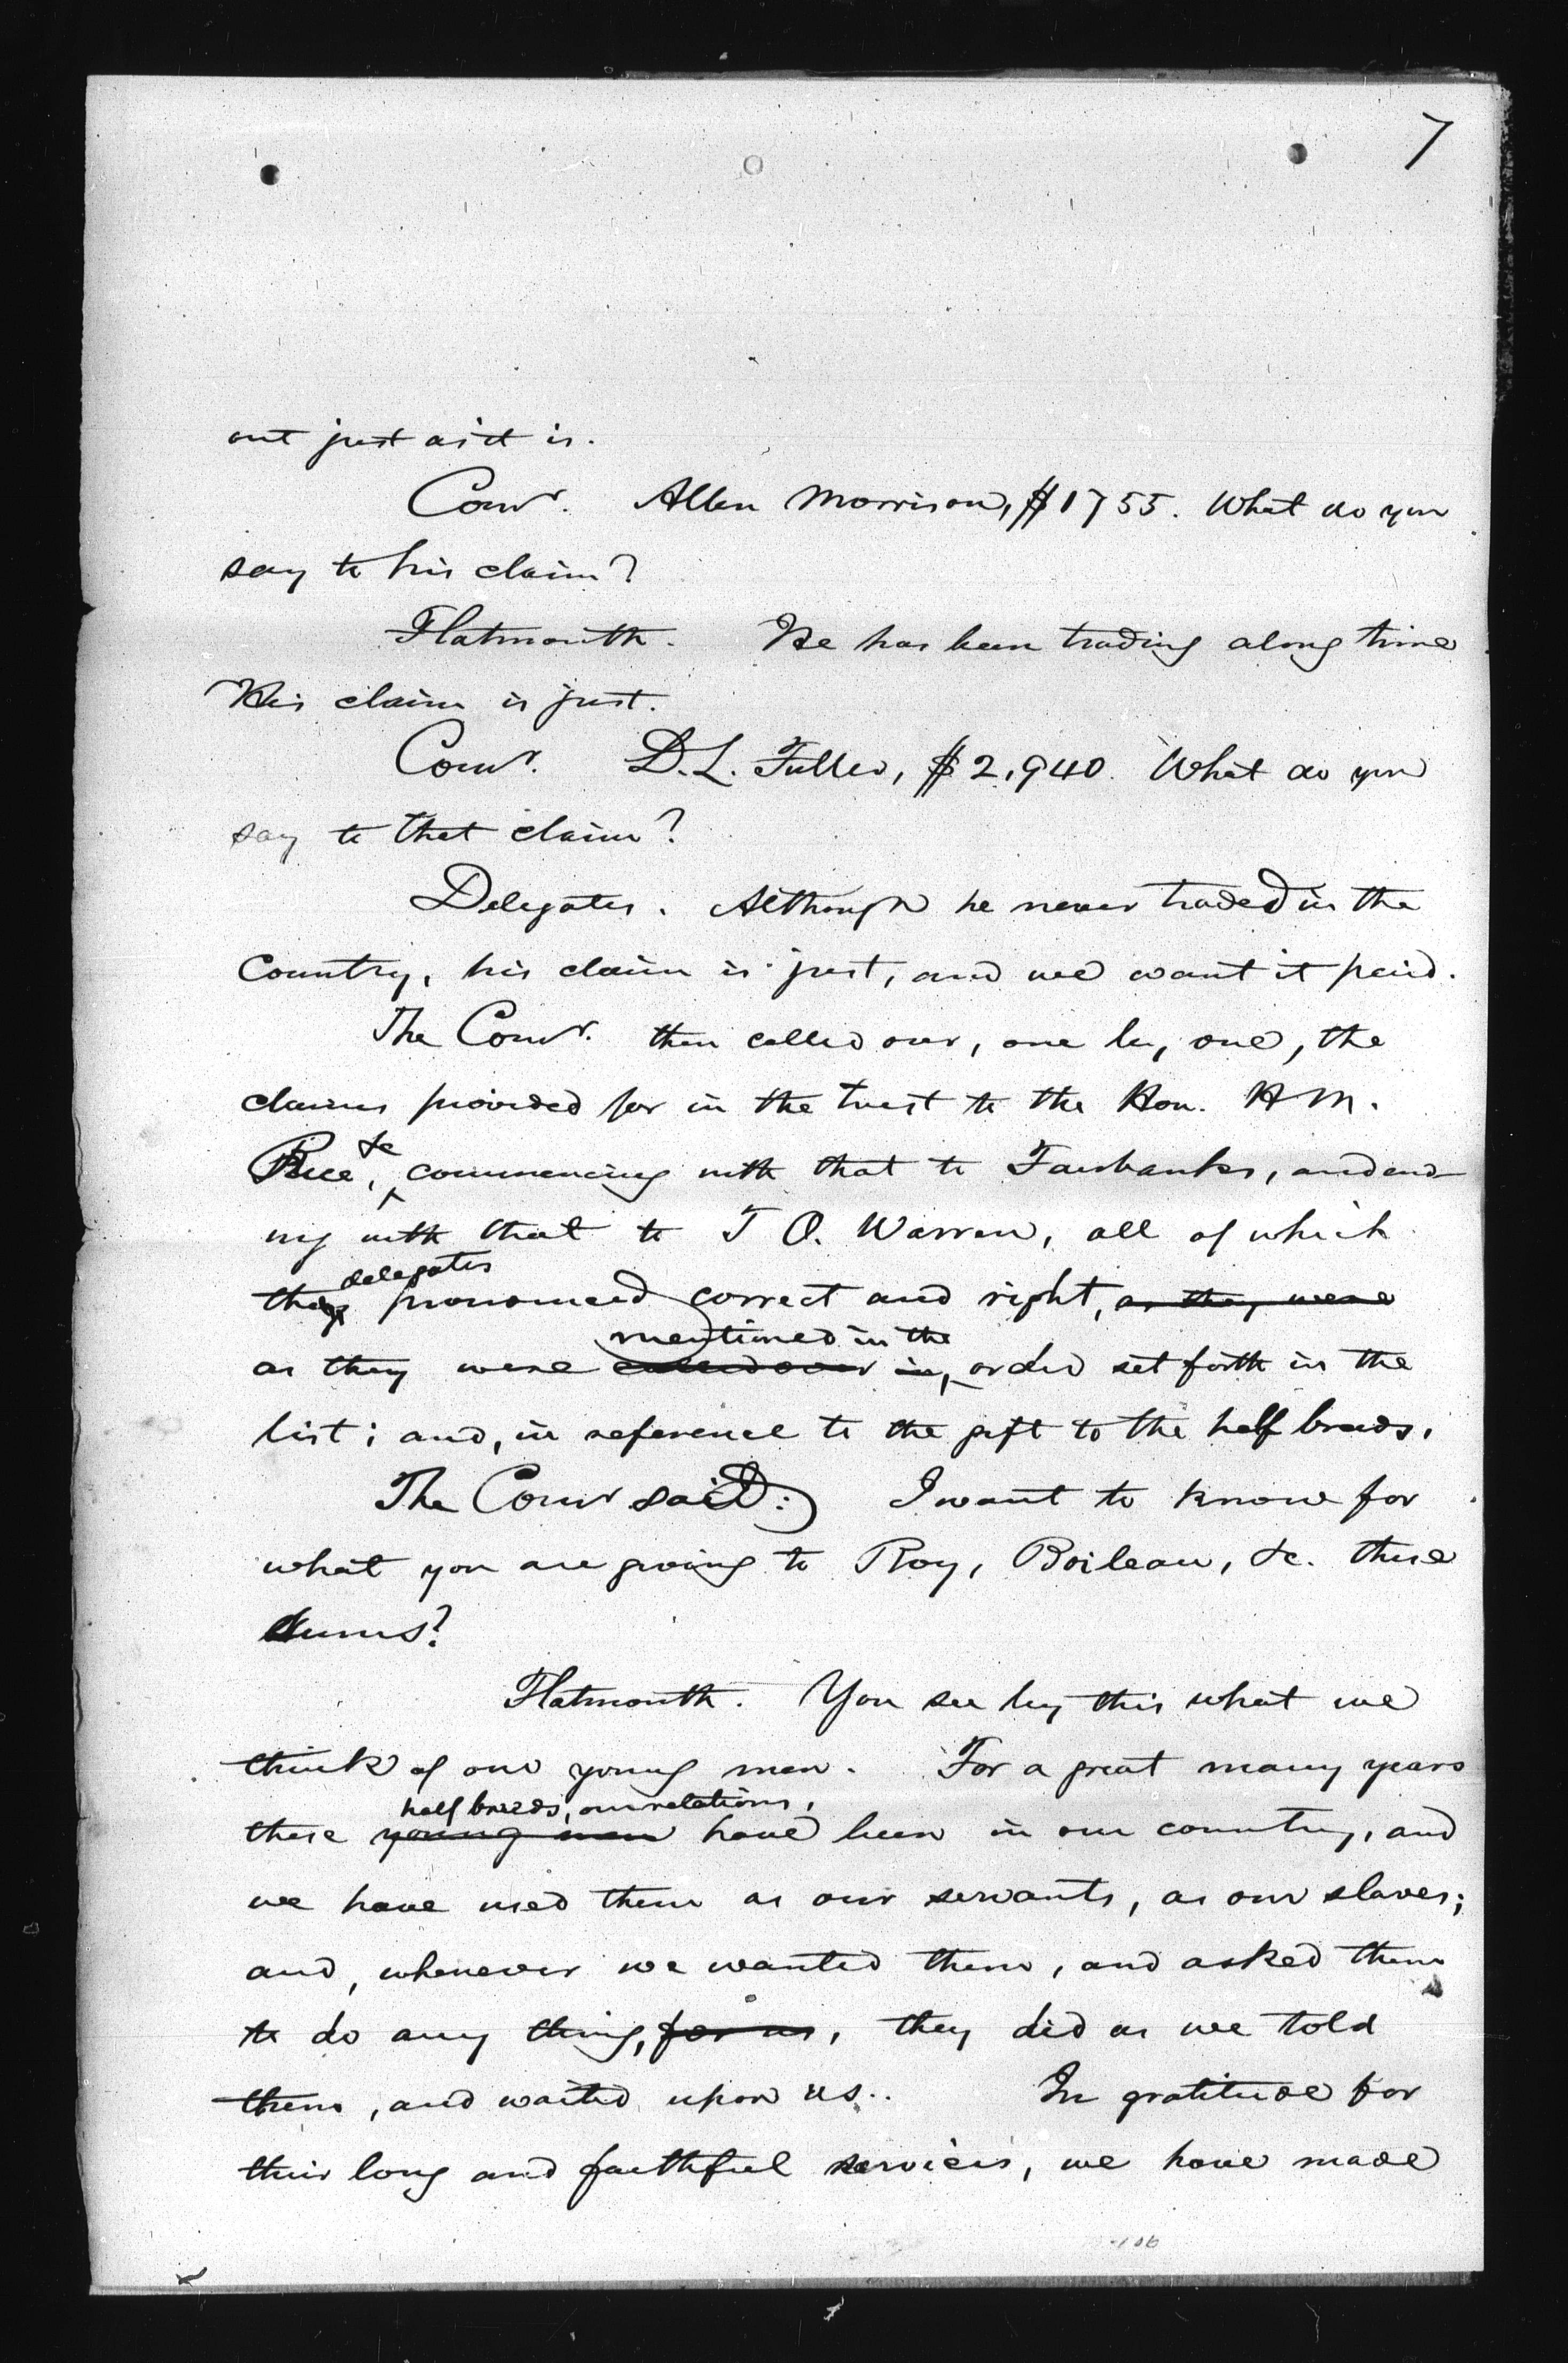 7
out just as it is.
Comr. Allen Morrison, $1755. What do you
say to his claim?
Flatmouth. He has been trading along time
His claim is just.
Comr. D.L. Fuller, $2,940. What do you
say to that claim?
Delegates. Although he never traded in the
Country, his claim is just, and we want it paid.
The Comr. then called over, one by, one, the
claims provided for in the trust to the Hon. H M.
&c
Rice, commencing with that to Fairbanks, and end-
ing with that to T O. Warren, all of which
delegates
the pronounced correct and right, as they were
mentioned in the
as they were called over in, order set forth in the
list; and, in reference to the gift to the half breeds,
The Comr said: I want to know for
what you are giving to Roy, Boileau, &c. these
sums?
Flatmouth. You see by this what we
think of our young men. For a great many years
half breeds, our relations,
these young men have been in our country, and
we have used them as our servants, as our slaves;
and, whenever we wanted them, and asked them
to do any thing, for us, they did as we told
them, and waited upon us.. In gratitude for
their long and faithful services, we have made
106